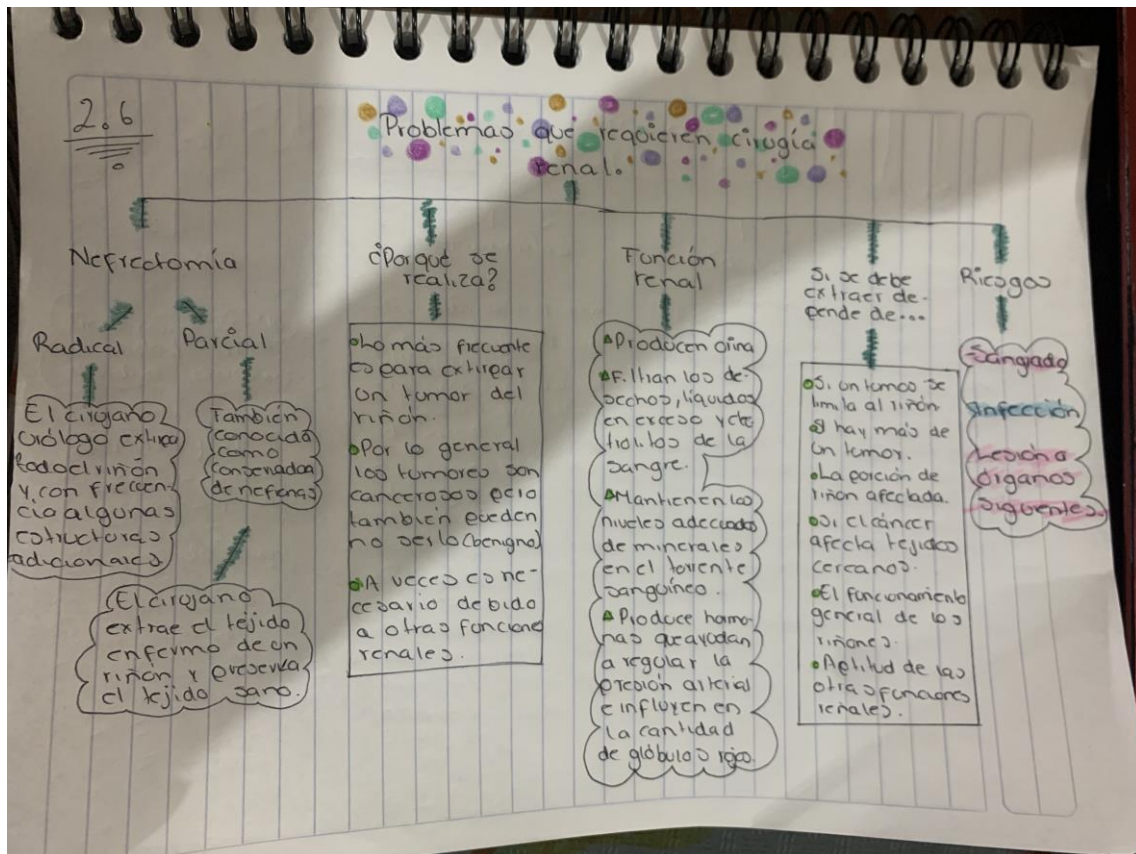 2.6
Problemas que requieren cirugía
renal.
Nefrectomía
Radical
El cirujano
urólogo extirpa
todo el riñón
y con frecuen-
cia algunas
estructuras
adicionales
Parcial
También
conocida
como
conservadora
de nefronas
El cirujano
extrae el tejido
enfermo de un
riñón y preserva
el tejido sano.
¿Por qué se
realiza?
Lo más frecuente
es para extirpar
un tumor del
riñón.
Por lo general
los tumores son
cancerosos pero
también pueden
no serlo (benigno)
A veces es ne-
cesario debido
a otras funciones
renales.
Función
renal
Producen orina
Filtran los de-
sechos, líquidos
en exceso y ele
trolitos de la
sangre.
Mantienen los
niveles adecuados
de minerales
en el torrente
sanguíneo.
Produce hormo-
nas que ayudan
a regular la
presión arterial
e influyen en
la cantidad
de glóbulos rojos.
Si se debe
extraer de-
pende de...
Si un tumor se
limita al riñón
Si hay más de
un tumor.
La porción de
riñón afectada.
Si el cáncer
afecta tejidos
cercanos.
El funcionamiento
general de los
riñones.
Aptitud de las
otras funciones
renales.
Riesgos
Sangrado
Infección
Lesión a
órganos
siguientes.